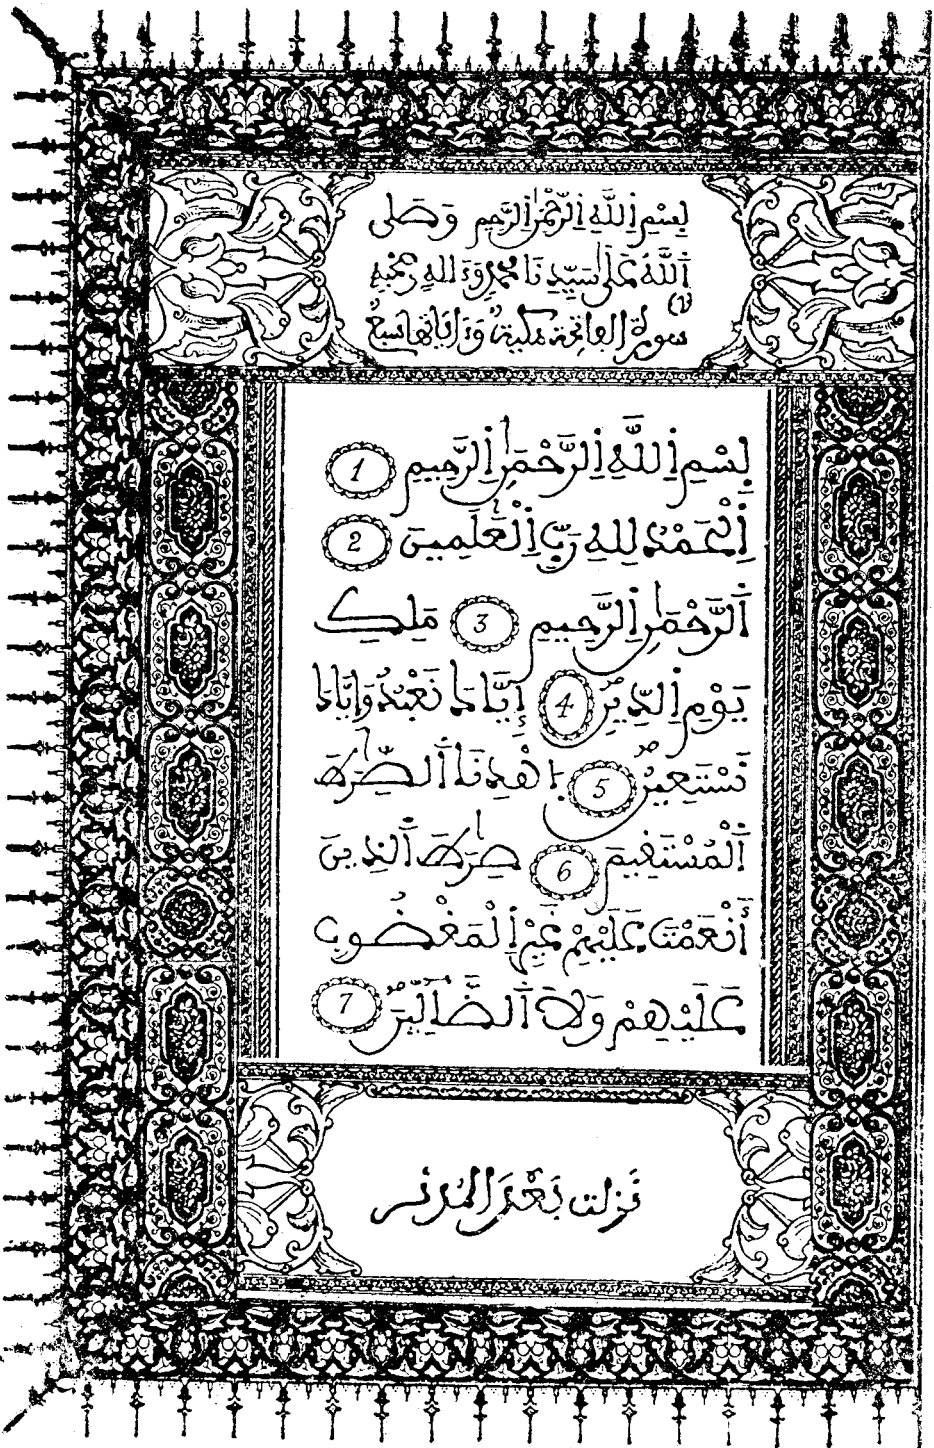 بِسْمِ اِ۬للَّهِ اِ۬لرَّحْمَٰنِ اِ۬لرَّحِيمِ وَصَلَّى
اَ۬للَّهُ عَلَىٰ سَيِّدِنَا مُحَمَّدٍ وَءَالِهِ وَصَحْبِهِ
(1)
سورة الفاتحة مكية وَءَايَاتُهَا سَبْعٌ
بِسْمِ اِ۬للَّهِ اِ۬لرَّحْمَٰنِ اِ۬لرَّحِيمِ 1
اِ۬لْحَمْدُ لِلهِ رَبِّ اِ۬لْعَٰلَمِينَ 2
اَ۬لرَّحْمَٰنِ اِ۬لرَّحِيمِ 3 مَلِكِ
يَوْمِ اِ۬لدِّينِ 4 إِيَّاكَ نَعْبُدُ وَإِيَّاكَ
نَسْتَعِينُ 5 اَ۪هْدِنَا اَ۬لصِّرَٰطَ
اَ۬لْمُسْتَقِيمَ 6 صِرَٰطَ اَ۬لذِينَ
أَنْعَمْتَ عَلَيْهِمْ غَيْرِ اِ۬لْمَغْضُوبِ
عَلَيْهِمْ وَلَا اَ۬لضَّآلِّينَ 7
نَزلت بَعْدَ المُدثر